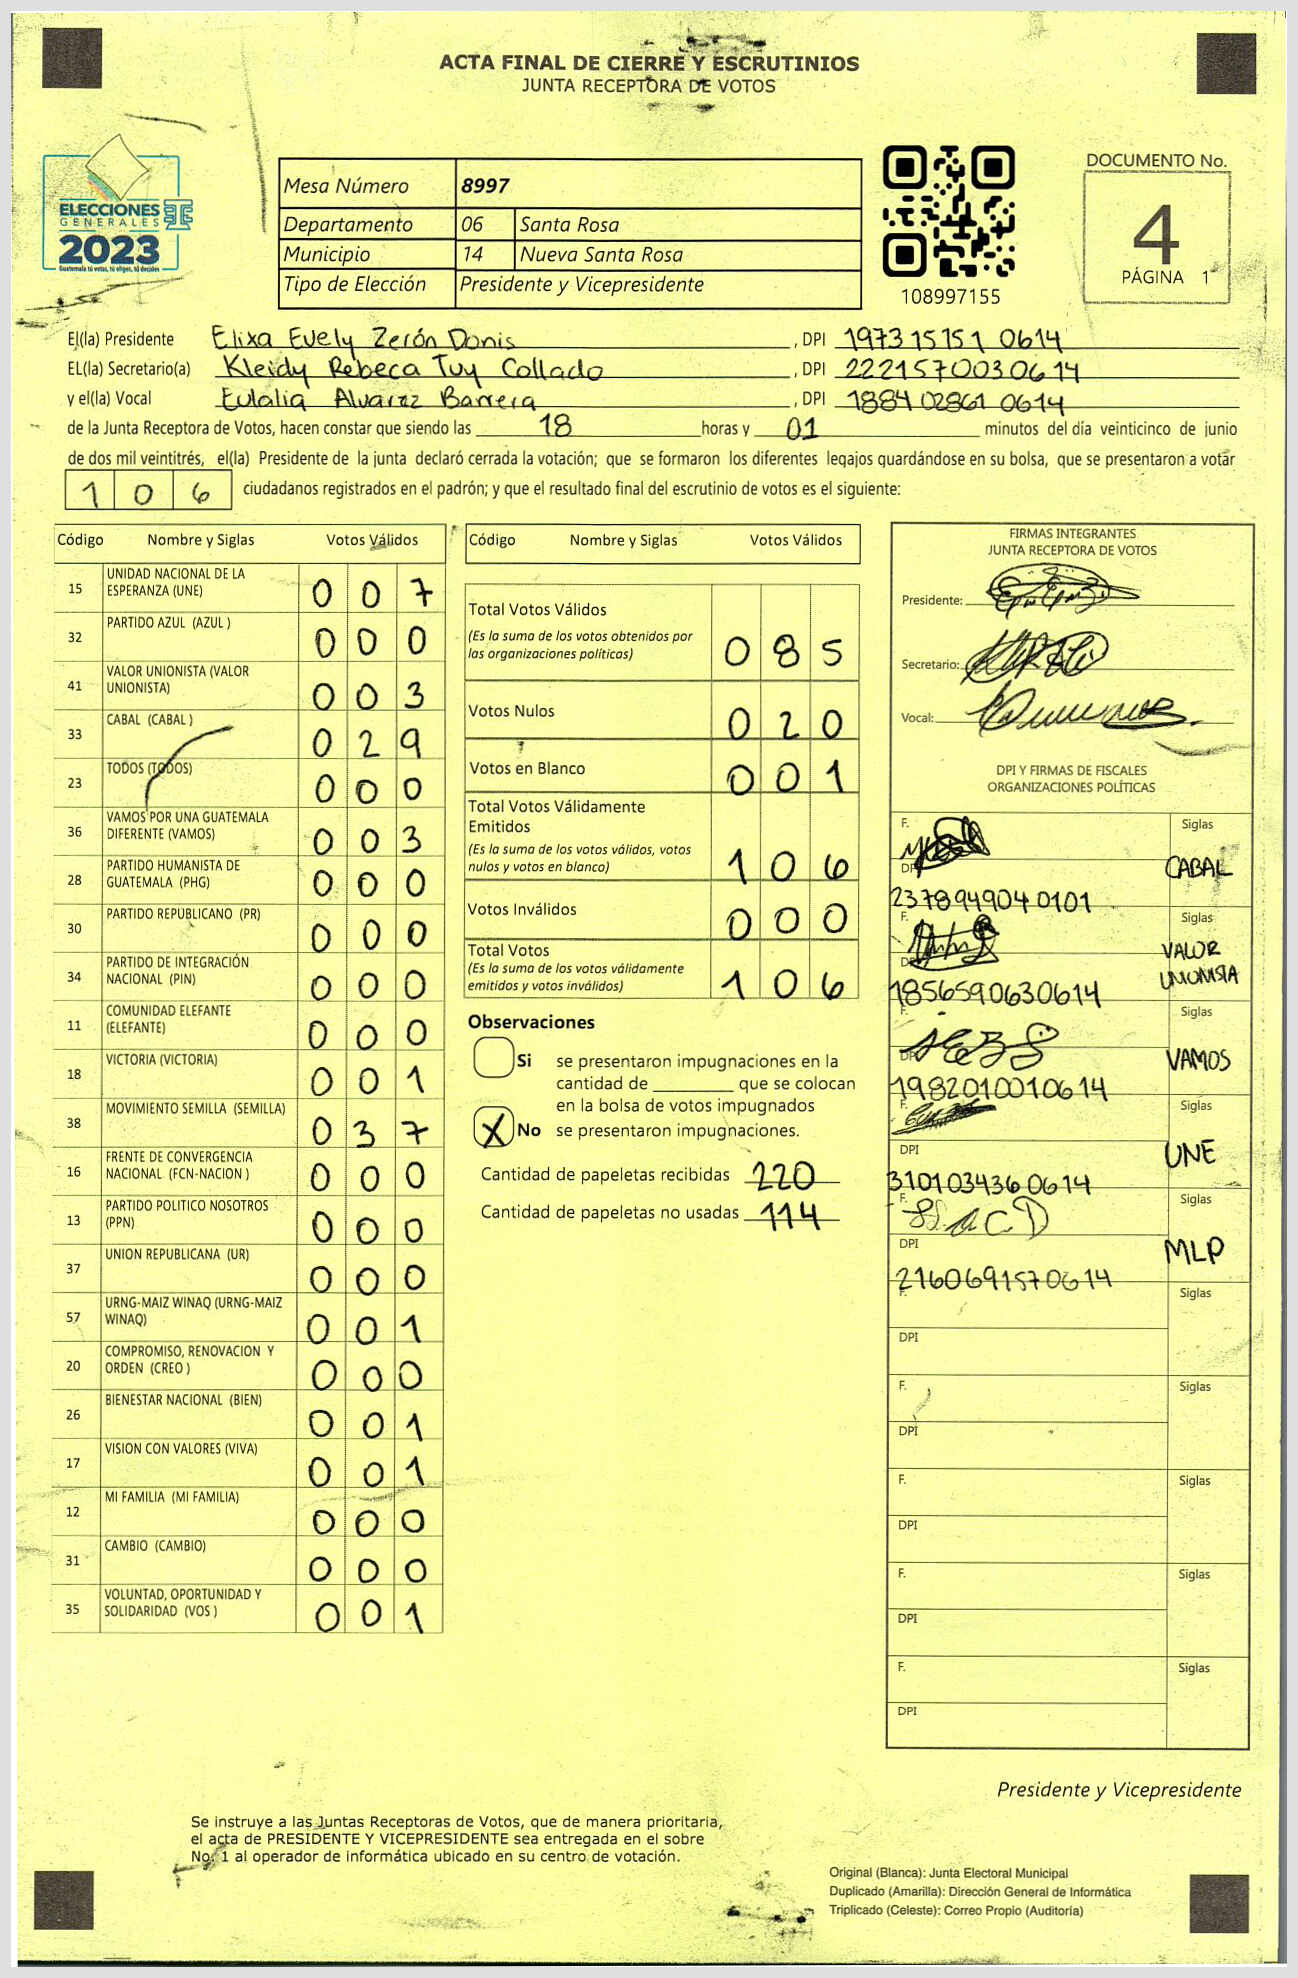 ACTA FINAL DE CIERRE Y ESCRUTINIOS
JUNTA RECEPTORA DE VOTOS
ELECCIONES
GENERALES
2023
Guatemala tú votas, tú eliges, tú decides
Mesa Número 8997
Departamento 06 Santa Rosa
Municipio 14 Nueva Santa Rosa
Tipo de Elección Presidente y Vicepresidente
108997155
DOCUMENTO No.
4
PÁGINA 1
El(la) Presidente Elixa Evely Zerón Donis, DPI 1973 15151 0614
EL(la) Secretario(a) Kleidy Rebeca Tuy Collado, DPI 2221570030614
y el(la) Vocal Eulalia Alvarez Barrera, DPI 1884 02861 0614
de la Junta Receptora de Votos, hacen constar que siendo las 18 horas y 01 minutos del día veinticinco de junio
de dos mil veintitrés, el(la) Presidente de la junta declaró cerrada la votación; que se formaron los diferentes legajos guardándose en su bolsa, que se presentaron a votar
106 ciudadanos registrados en el padrón; y que el resultado final del escrutinio de votos es el siguiente:
Código Nombre y Siglas Votos Válidos
15 UNIDAD NACIONAL DE LA ESPERANZA (UNE) 007
32 PARTIDO AZUL (AZUL ) 000
41 VALOR UNIONISTA (VALOR UNIONISTA) 003
33 CABAL (CABAL ) 029
23 TODOS (TODOS) 000
36 VAMOS POR UNA GUATEMALA DIFERENTE (VAMOS) 003
28 PARTIDO HUMANISTA DE GUATEMALA (PHG) 000
30 PARTIDO REPUBLICANO (PR) 000
34 PARTIDO DE INTEGRACIÓN NACIONAL (PIN) 000
11 COMUNIDAD ELEFANTE (ELEFANTE) 000
18 VICTORIA (VICTORIA) 001
38 MOVIMIENTO SEMILLA (SEMILLA) 037
16 FRENTE DE CONVERGENCIA NACIONAL (FCN-NACION ) 000
13 PARTIDO POLITICO NOSOTROS (PPN) 000
37 UNION REPUBLICANA (UR) 000
57 URNG-MAIZ WINAQ (URNG-MAIZ WINAQ) 001
20 COMPROMISO, RENOVACION Y ORDEN (CREO ) 000
26 BIENESTAR NACIONAL (BIEN) 001
17 VISION CON VALORES (VIVA) 001
12 MI FAMILIA (MI FAMILIA) 000
31 CAMBIO (CAMBIO) 000
35 VOLUNTAD, OPORTUNIDAD Y SOLIDARIDAD (VOS ) 001
Código Nombre y Siglas Votos Válidos
Total Votos Válidos
(Es la suma de los votos obtenidos por
las organizaciones políticas) 085
Votos Nulos 020
Votos en Blanco 001
Total Votos Válidamente
Emitidos
(Es la suma de los votos válidos, votos
nulos y votos en blanco) 106
Votos Inválidos 000
Total Votos
(Es la suma de los votos válidamente
emitidos y votos inválidos) 106
Observaciones
Si se presentaron impugnaciones en la
cantidad de ________ que se colocan
en la bolsa de votos impugnados
X No se presentaron impugnaciones.
Cantidad de papeletas recibidas 220
Cantidad de papeletas no usadas 114
FIRMAS INTEGRANTES
JUNTA RECEPTORA DE VOTOS
Presidente:
Secretario:
Vocal:
DPI Y FIRMAS DE FISCALES
ORGANIZACIONES POLÍTICAS
F. Siglas
DPI 237894904 0101 CABAL
F. Siglas
DPI 1856590630614 VALOR UNIONISTA
F. Siglas
DPI 1982010010614 VAMOS
F. Siglas
DPI 3101034360614 UNE
F. Siglas
DPI 2160691570614 MLP
F. Siglas
DPI
F. Siglas
DPI
F. Siglas
DPI
F. Siglas
DPI
F. Siglas
DPI
Presidente y Vicepresidente
Se instruye a las Juntas Receptoras de Votos, que de manera prioritaria,
el acta de PRESIDENTE Y VICEPRESIDENTE sea entregada en el sobre
No. 1 al operador de informática ubicado en su centro de votación.
Original (Blanca): Junta Electoral Municipal
Duplicado (Amarilla): Dirección General de Informática
Triplicado (Celeste): Correo Propio (Auditoría)